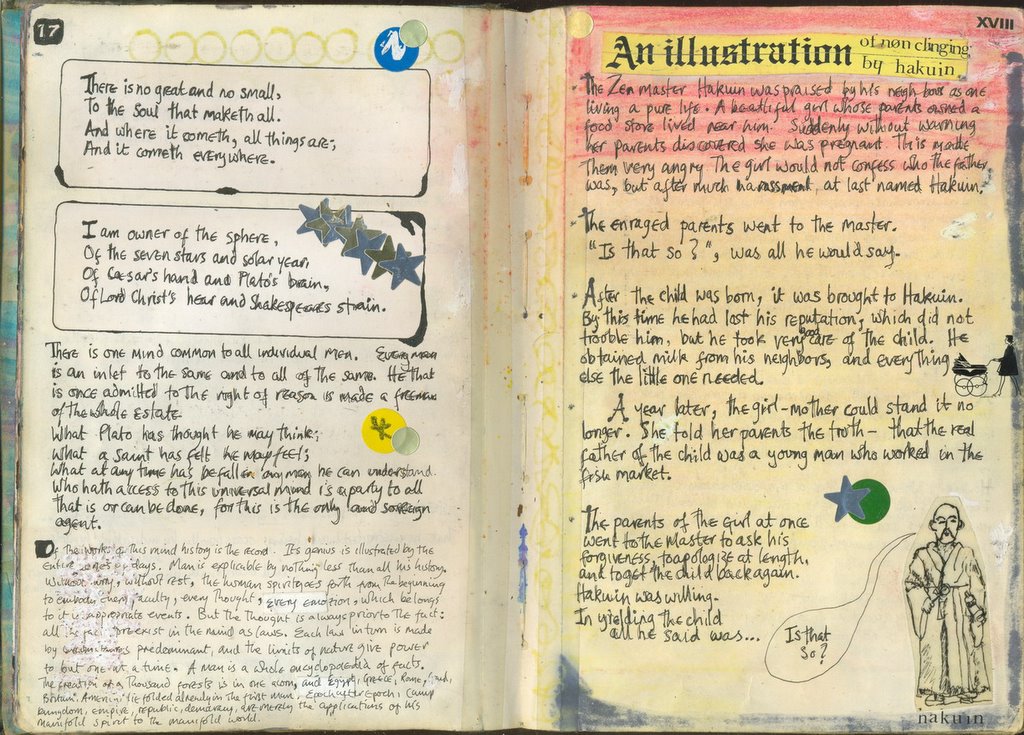 17
There is no great and no small,
To the Soul that maketh all.
And where it cometh, all things are;
And it cometh everywhere.
I am owner of the sphere,
Of the seven stars and solar year,
Of Cæsar's hand and Plato's brain,
Of Lord Christ's hear and Shakespeares strain.
There is one mind common to all individual men. Every man
is an inlet to the same and to all of the same. He that
is once admitted to the right of reason is made a freeman
of the whole estate
What Plato has thought he may think;
What a Saint has felt he may feel;
What at any time has befallen any man he can understand.
Who hath access to this universal mind is a party to all
that is or can be done, for this is the only and sovereign
agent.
Of the works of this mind history is the record. Its genius is illustrated by the
entire series of days. Man is explicable by nothing less than all his history.
Without hurry, without rest, the human spirit goes forth from the beginning
to embody every faculty, every thought, every emotion, which belongs
to it in appropriate events. But the thought is always prior to the fact:
all the facts preexist in the mind as laws. Each law in turn is made
by circumstances predominant, and the limits of nature give power
to but one at a time. A man is a whole encyclopaedia of facts.
The creation of a thousand forests is in one acorn, and Egypt, Greece, Rome, Gaul,
Britain, America lie folded already in the first man. Epoch after Epoch, camp
kingdom, empire, republic, democracy, are merely the applications of his
manifold spirit to the manifold world.
XVIII
An illustration of non clinging
by hakuin
The Zen master Hakuin was praised by his neighbors as one
living a pure life. A beautiful girl whose parents owned a
food store lived near him. Suddenly without warning
her parents discovered she was pregnant. This made
them very angry The girl would not confess who the father
was, but after much harassment, at last named Hakuin.
The enraged parents went to the master.
"Is that so?", was all he would say.
After the child was born, it was brought to Hakuin.
By this time he had lost his reputation, which did not
trouble him, but he took very good care of the child. He
obtained milk from his neighbors, and everything
else the little one needed.
A year later, the girl-mother could stand it no
longer. She told her parents the truth - that the real
father of the child was a young man who worked in the
fish market.
The parents of the girl at once
went to the Master to ask his
forgiveness, to apologize at length,
and to get the child back again.
Hakuin was willing.
In yielding the child
all he said was...
Is that
So?
hakuin